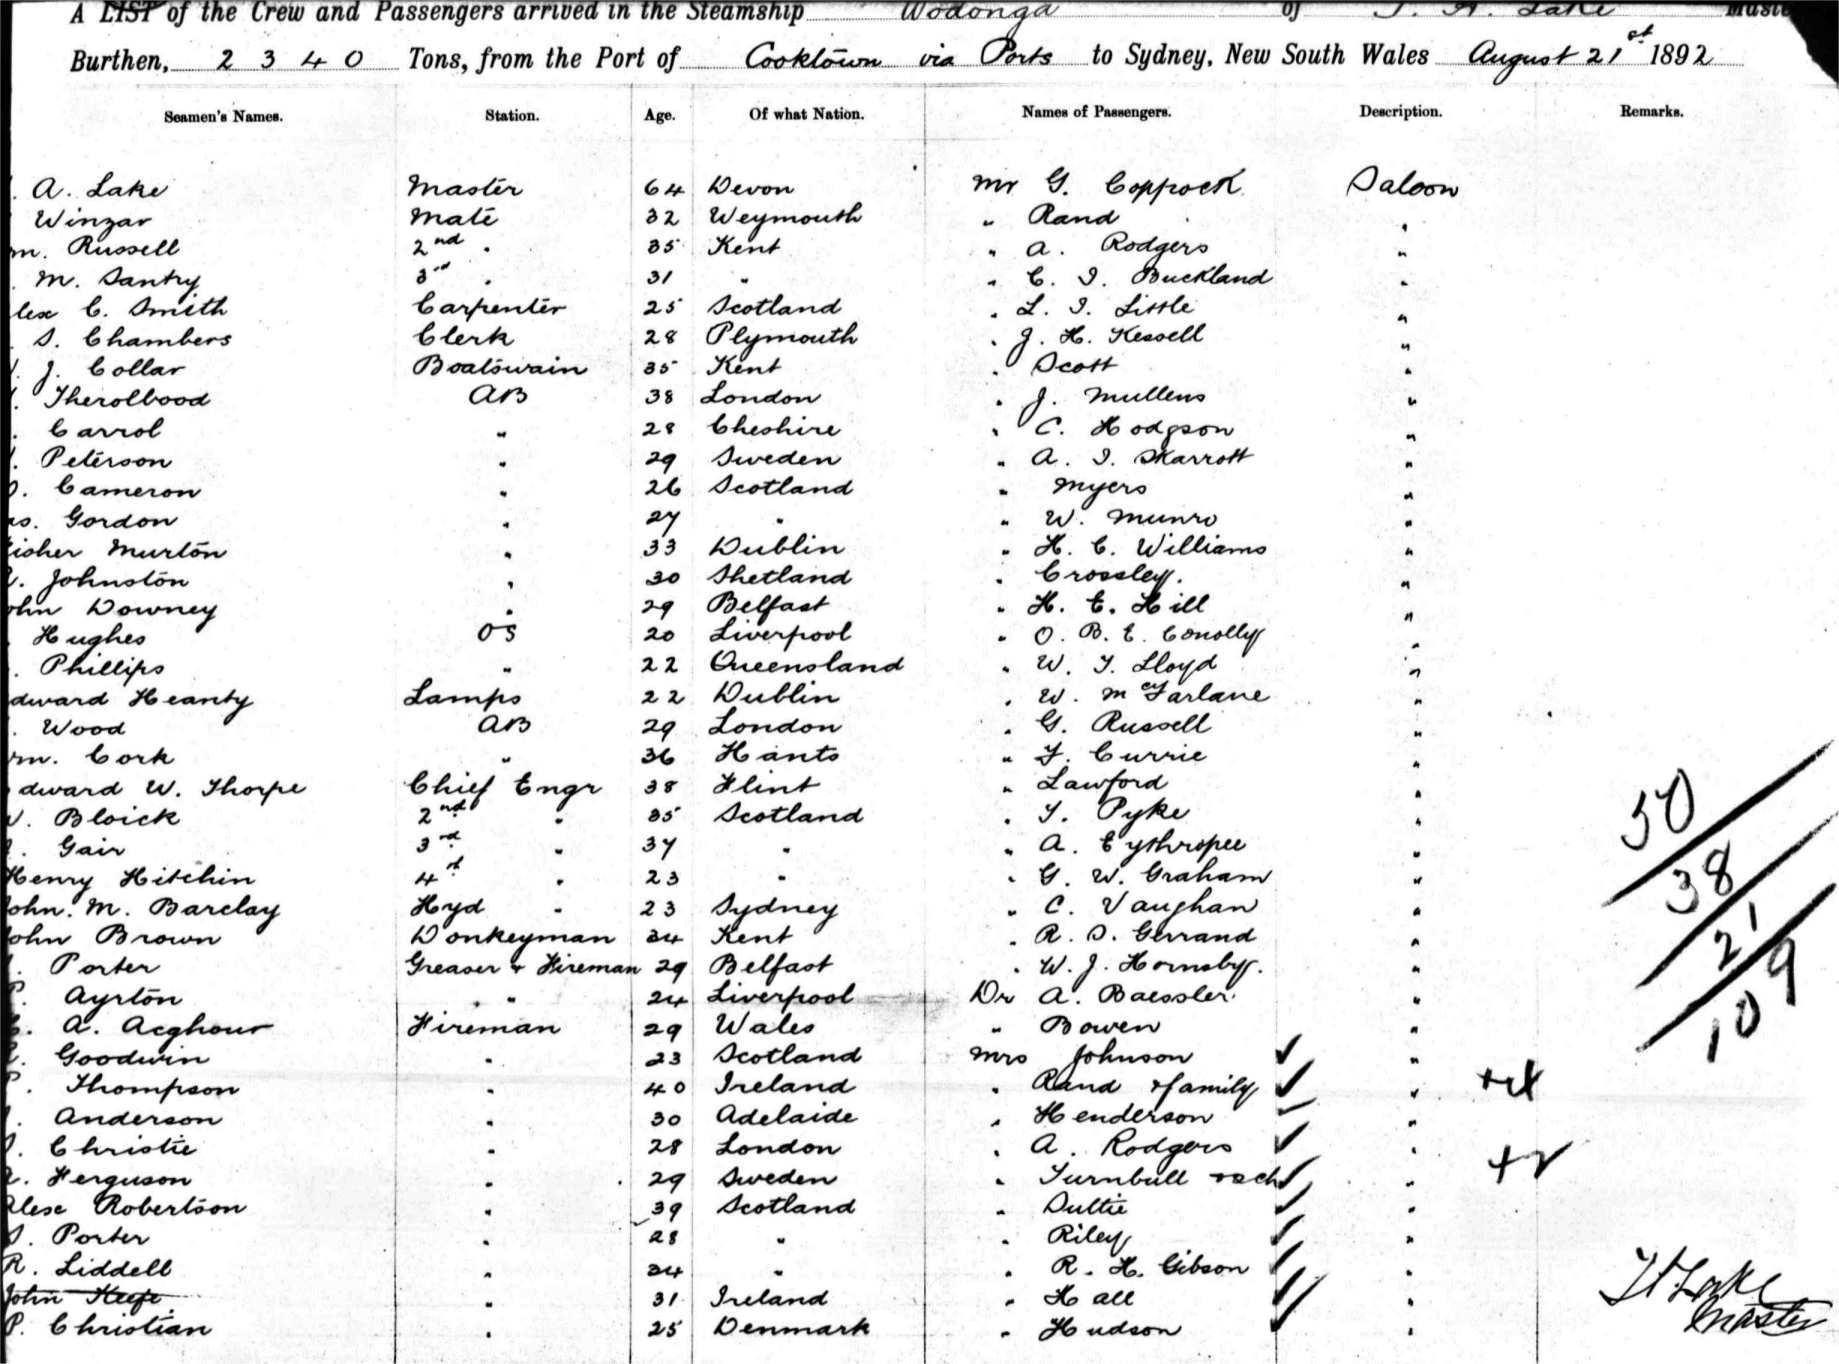 A LIST of the Crew and Passengers arrived in the Steamship Wodonga of T. A. Lake Master
Burthen, 2340 Tons, from the Port of Cooktown via Ports to Sydney, New South Wales August 21st 1892
Seamen's Names. Station. Age. Of what Nation. Names of Passengers. Description. Remarks.
A. Lake Master 64 Devon Mr G. Coppock Saloon
Winzar Mate 32 Weymouth " Rand "
m. Russell 2nd " 35 Kent " A. Rodgers "
M. Santry 3rd " 31 " " C. I. Buckland "
lex C. Smith Carpenter 25 Scotland " L. I. Little "
S. Chambers Clerk 28 Plymouth " J. H. Kessell "
J. Collar Boatswain 35 Kent " Scott "
Therolbood AB 38 London " J. Mullens "
Carrol " 28 Cheshire " C. Hodgson "
Peterson " 29 Sweden " A. I. Skarrott "
Cameron " 26 Scotland " Myers "
as. Gordon " 27 " " W. Munro "
isher Murton " 33 Dublin " H. C. Williams "
Johnston " 30 Shetland " Crossley. "
ohn Downey " 29 Belfast " H. E. Hill "
Hughes OS 20 Liverpool " O. B. E. Conolly "
Phillips " 22 Queensland " W. T. Lloyd "
dward Heanty Lamps 22 Dublin " W. McFarlane "
Wood AB 29 London " G. Russell "
m. Cork " 36 Hants " F. Currie "
dward W. Thorpe Chief Engr 38 Flint " Lawford "
Bloick 2nd " 35 Scotland " T. Pyke "
Gair 3rd " 37 " " A. Eythropee "
Henry Hitchin 4th " 23 " " G. W. Graham "
John. M. Barclay Hyd " 23 Sydney " C. Vaughan "
John Brown Donkeyman 34 Kent " R. S. Gerrand "
Porter Greaser & Fireman 29 Belfast " W. J. Hornsby. "
P. Ayrton " 24 Liverpool Dr A. Baessler "
A. Acghour Fireman 29 Wales " Bowen "
Goodwin " 23 Scotland Mrs Johnson ✓ "
P. Thompson " 40 Ireland " Rand & family ✓ "
Anderson " 30 Adelaide " Henderson ✓ "
Christie " 28 London " A. Rodgers ✓ "
Ferguson " 29 Sweden " Turnbull & ch ✓ "
Alex Robertson " 39 Scotland " Duttie ✓ "
Porter " 28 " " Riley ✓ "
R. Liddell " 34 " " R. H. Gibson ✓ "
John Keefe " 31 Ireland " Hall ✓ "
P. Christian " 25 Denmark " Hudson ✓ "
50
38
21
109
T A Lake
Master